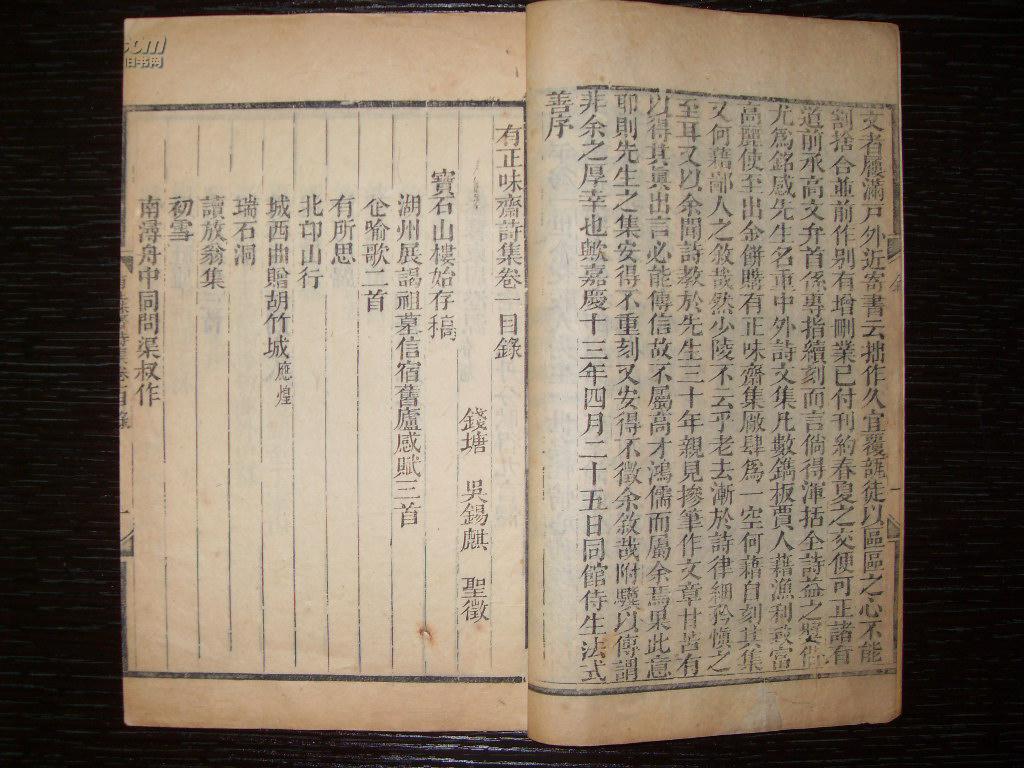 文者屨滿戸外近寄書云拙作久宜覆瓿徒以區區之心不能
割捨合並前作別有増刪業已付刊約春夏之交便可正諸有
道前承高文弁首係專指續刻而言倘得渾括全詩益之
尤為銘感先生名重中外詩文集凡數鐫板賈人藉漁利致富
高麗使至出金餅購有正味齋集厰肆為一空何藉自刻其集
又何藉鄙人之敘哉然少陵不云乎老去漸於詩律細矜慎之
至耳又以余聞詩教於先生三十年親見摻筆作文章甘苦有
以得其眞出言必能傳信故不屬高才鴻儒而屬余焉果此意
耶則先生之集安得不重刻又安得不徵余敘哉附驥以傳謂
非余之厚幸也歟嘉慶十三年四月二十五日同館侍生法式
善序
有正味齋詩集卷一目錄
錢塘 吳錫麒 聖徵
寶石山樓始存稿
湖州展謁祖墓信宿舊廬感賦三首
企喻歌二首
有所思
北邙山行
城西曲贈胡竹城應煌
瑞石洞
讀放翁集
初雪
南潯舟中同問渠叔作